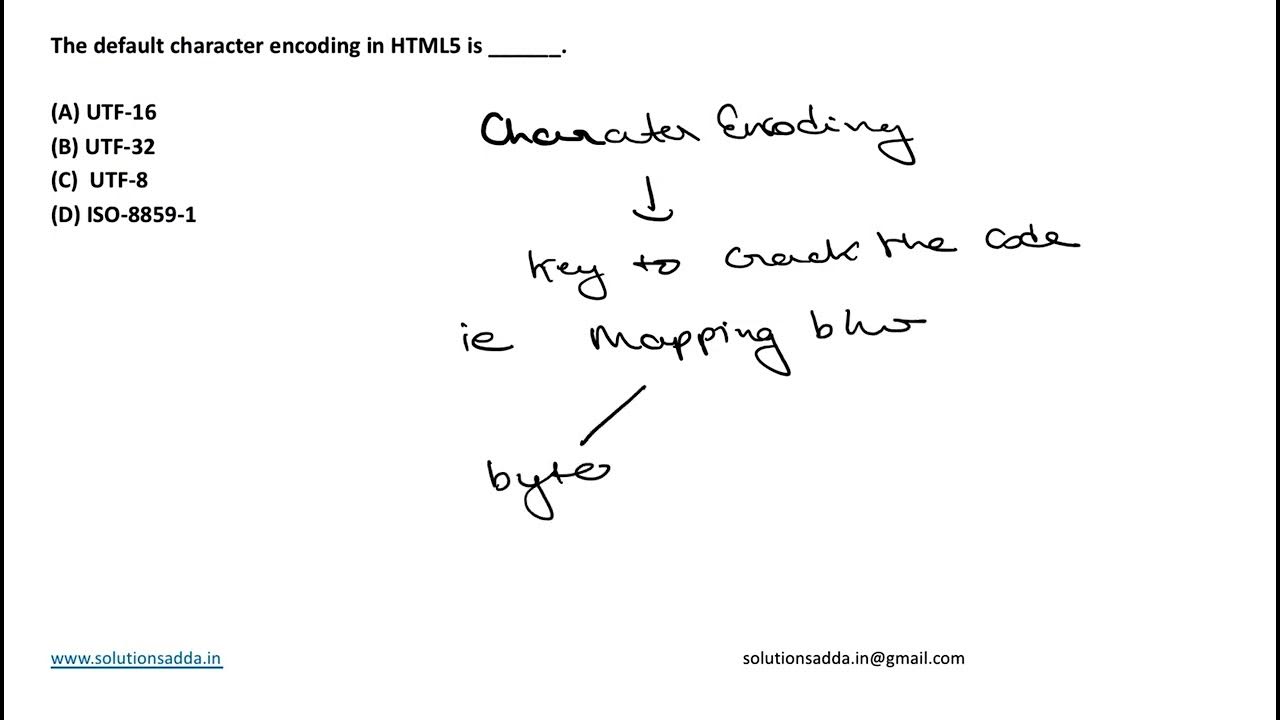 The default character encoding in HTML5 is ______.
(A) UTF-16
(B) UTF-32
(C) UTF-8
(D) ISO-8859-1
Charater Encoding
Key to crack the code
ie Mapping
byte
www.solutionsadda.in
solutionsadda.in@gmail.com